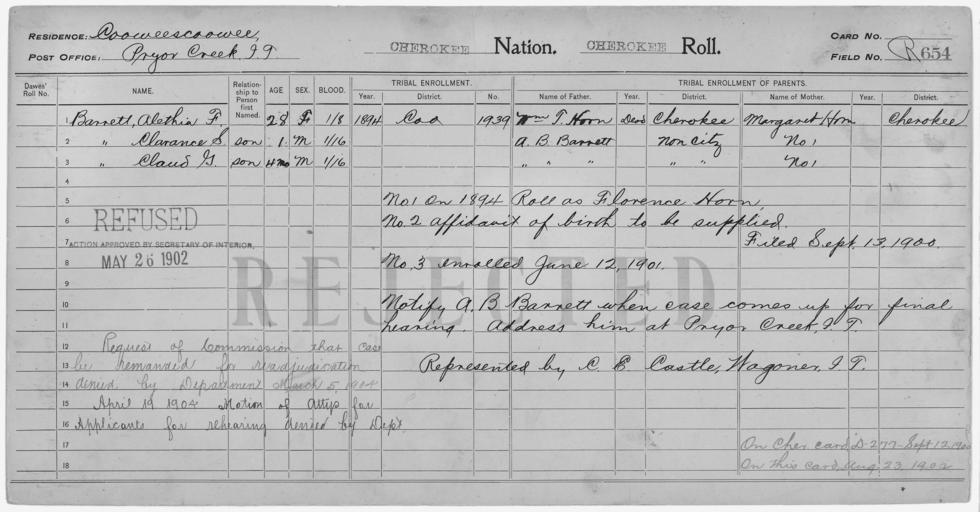 RESIDENCE: Cooweescoowee,
POST OFFICE: Pryor Creek, I.T.
CHEROKEE Nation. CHEROKEE Roll.
CARD NO.
FIELD NO. R 654
Dawes' Roll No. NAME. Relationship to Person first Named. AGE SEX. BLOOD. TRIBAL ENROLLMENT. Year. District. No. TRIBAL ENROLLMENT OF PARENTS. Name of Father. Year. District. Name of Mother. Year. District.
1 Barrett, Alethia F 28 F 1/8 1894 Coo 1939 Wm T. Horn Dead Cherokee Margaret Horn Cherokee
2 " Clarance S. son 1 M 1/16 A. B. Barrett non citz No 1
3 " Claud G. son 4 mo M 1/16 " " " " " No 1
4
5 No 1 On 1894 Roll as Florence Horn,
6 No. 2 affidavit of birth to be supplied.
REFUSED
7 Filed Sept. 13, 1900.
ACTION APPROVED BY SECRETARY OF INTERIOR,
MAY 26 1902
8 No. 3 enrolled June 12, 1901.
REJECTED
9
10 Notify A. B Barrett when case comes up for final
11 hearing. Address him at Pryor Creek, I T.
12 Request of Commission that case
13 be remanded for readjudication Represented by C. E. Castle, Wagoner, I T.
14 denied by Department March 5, 1904
15 April 19 1904 Motion of attys for
16 Applicants for rehearing denied by Dept.
17 On Cher card D-277-Sept 12, 1900
18 On this card, Aug. 23, 1902